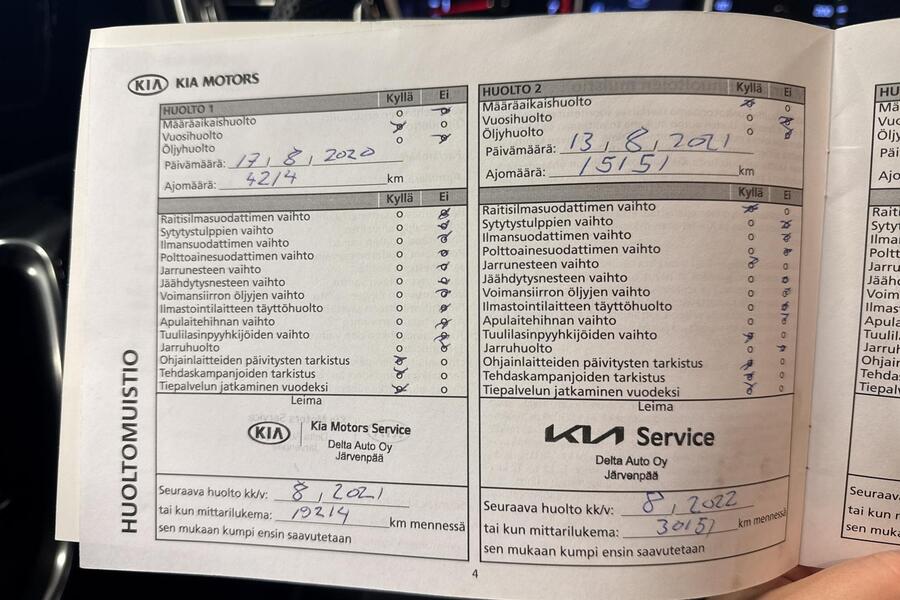 KIA KIA MOTORS
HUOLTO 1 Kyllä Ei
Määräaikaishuolto
Vuosihuolto
Öljyhuolto
Päivämäärä: 17, 8, 2020
Ajomäärä: 4214 km
Kyllä Ei
Raitisilmasuodattimen vaihto
Sytytystulppien vaihto
Ilmansuodattimen vaihto
Polttoainesuodattimen vaihto
Jarrunesteen vaihto
Jäähdytysnesteen vaihto
Voimansiirron öljyjen vaihto
Ilmastointilaitteen täyttöhuolto
Apulaitehihnan vaihto
Tuulilasinpyyhkijöiden vaihto
Jarruhuolto
Ohjainlaitteiden päivitysten tarkistus
Tehdaskampanjoiden tarkistus
Tiepalvelun jatkaminen vuodeksi
Leima
KIA Kia Motors Service
Delta Auto Oy
Järvenpää
Seuraava huolto kk/v: 8, 2021
tai kun mittarilukema: 19214 km mennessä
sen mukaan kumpi ensin saavutetaan
HUOLTO 2 Kyllä Ei
Määräaikaishuolto
Vuosihuolto
Öljyhuolto
Päivämäärä: 13, 8, 2021
Ajomäärä: 15151 km
Kyllä Ei
Raitisilmasuodattimen vaihto
Sytytystulppien vaihto
Ilmansuodattimen vaihto
Polttoainesuodattimen vaihto
Jarrunesteen vaihto
Jäähdytysnesteen vaihto
Voimansiirron öljyjen vaihto
Ilmastointilaitteen täyttöhuolto
Apulaitehihnan vaihto
Tuulilasinpyyhkijöiden vaihto
Jarruhuolto
Ohjainlaitteiden päivitysten tarkistus
Tehdaskampanjoiden tarkistus
Tiepalvelun jatkaminen vuodeksi
Leima
KIA Service
Delta Auto Oy
Järvenpää
Seuraava huolto kk/v: 8, 2022
tai kun mittarilukema: 30151 km mennessä
sen mukaan kumpi ensin saavutetaan
HUOLTOMUISTIO
4